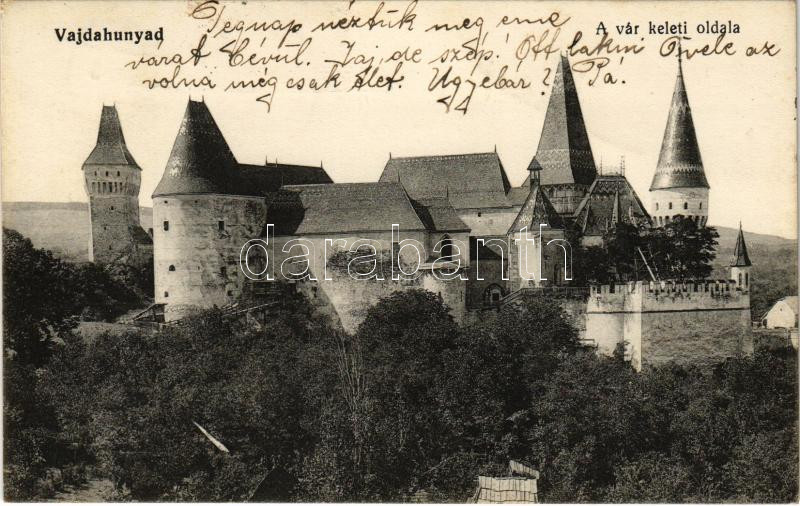 Vajdahunyad
A vár keleti oldala
Tegnap néztük meg eme
várat bévül. Jaj, de szép! Ott lakni Ővele az
volna még csak élet. Ugyebár? Pá.
darabanth